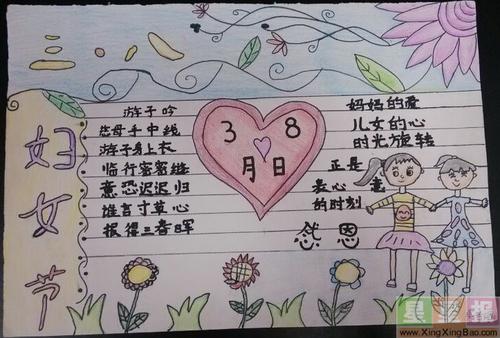 三·八
妇女节
游子吟
慈母手中线
游子身上衣
临行密密缝
意恐迟迟归
谁言寸草心
报得三春晖
3 8
月日
妈妈的爱
儿女的心
时光旋转
正是
表心意
的时刻
感恩
星星报
www.XingXingBao.com